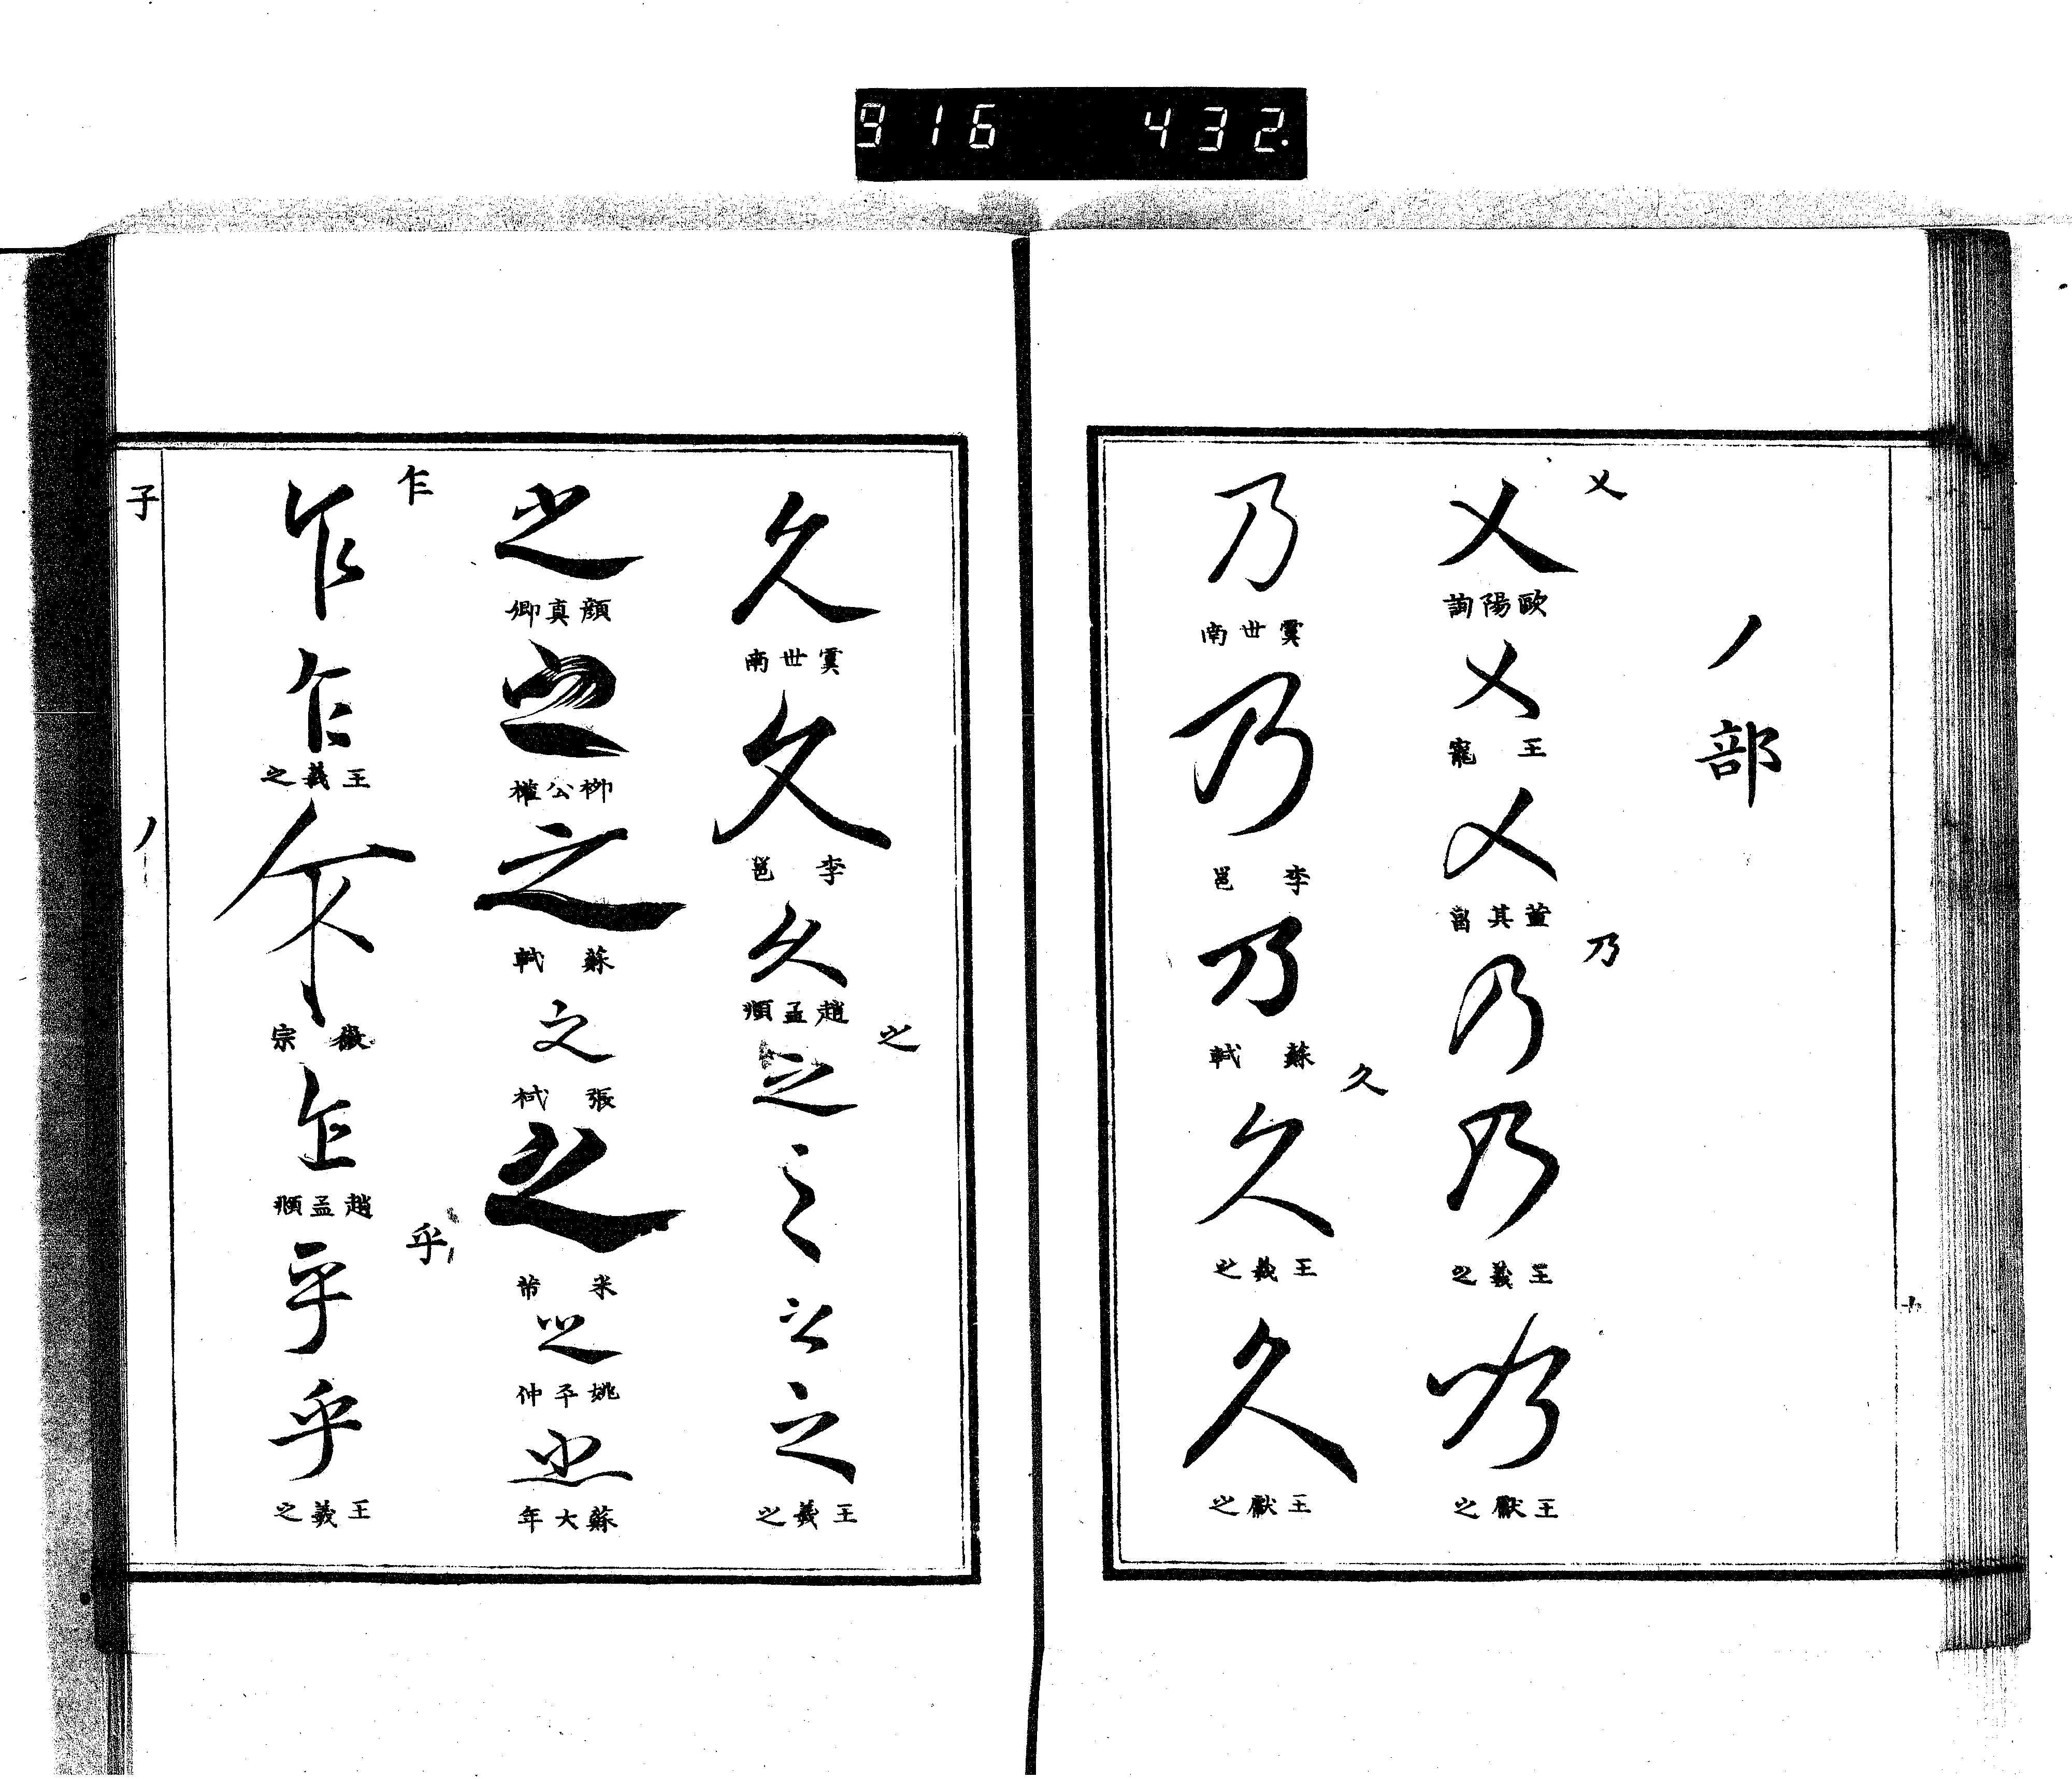 916 432.
丿部
乂
乂
歐陽詢
乂
王寵
乂
董其昌
乃
乃
乃
王羲之
乃
王獻之
乃
虞世南
乃
李邕
乃
蘇軾
久
久
王羲之
久
王獻之
十
久
虞世南
久
李邕
久
趙孟頫
之
之
之
之
之
王羲之
之
顏真卿
之
柳公權
之
蘇軾
之
張栻
之
米芾
之
姚子仲
之
蘇大年
乍
乍
乍
王羲之
乍
徽宗
乍
趙孟頫
乎
乎
乎
王羲之
子 丿